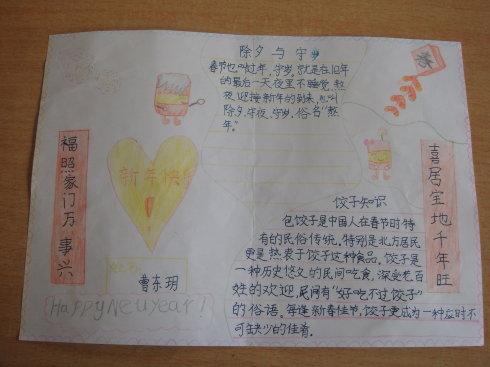 除夕与守岁
春节也叫过年,守岁,就是在旧年
的最后一天夜里不睡觉,熬
夜迎接新年的到来,也叫
除夕守夜、守岁,俗名"熬
年。"
春
福照家门万事兴
新年快乐
曹东玥
HappyNewYear!
喜居宝地千年旺
饺子知识
包饺子是中国人在春节时特
有的民俗传统,特别是北方居民
更是热衷于饺子这种食品,饺子是
一种历史悠久的民间吃食,深受老百
姓的欢迎,民间有"好吃不过饺子"
的俗语。每逢新春佳节,饺子更成为一种应时不
可缺少的佳肴。